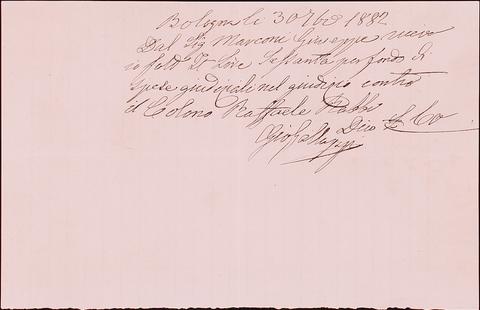 Bologna li 30 7bre 1882
Dal Sig Marconi Giuseppe ricevo
io sotto Lire Sessanta per fondo di
spese giudiziali nel giudizio contro
il Colono Raffaele Rabbi
Dico
Gio